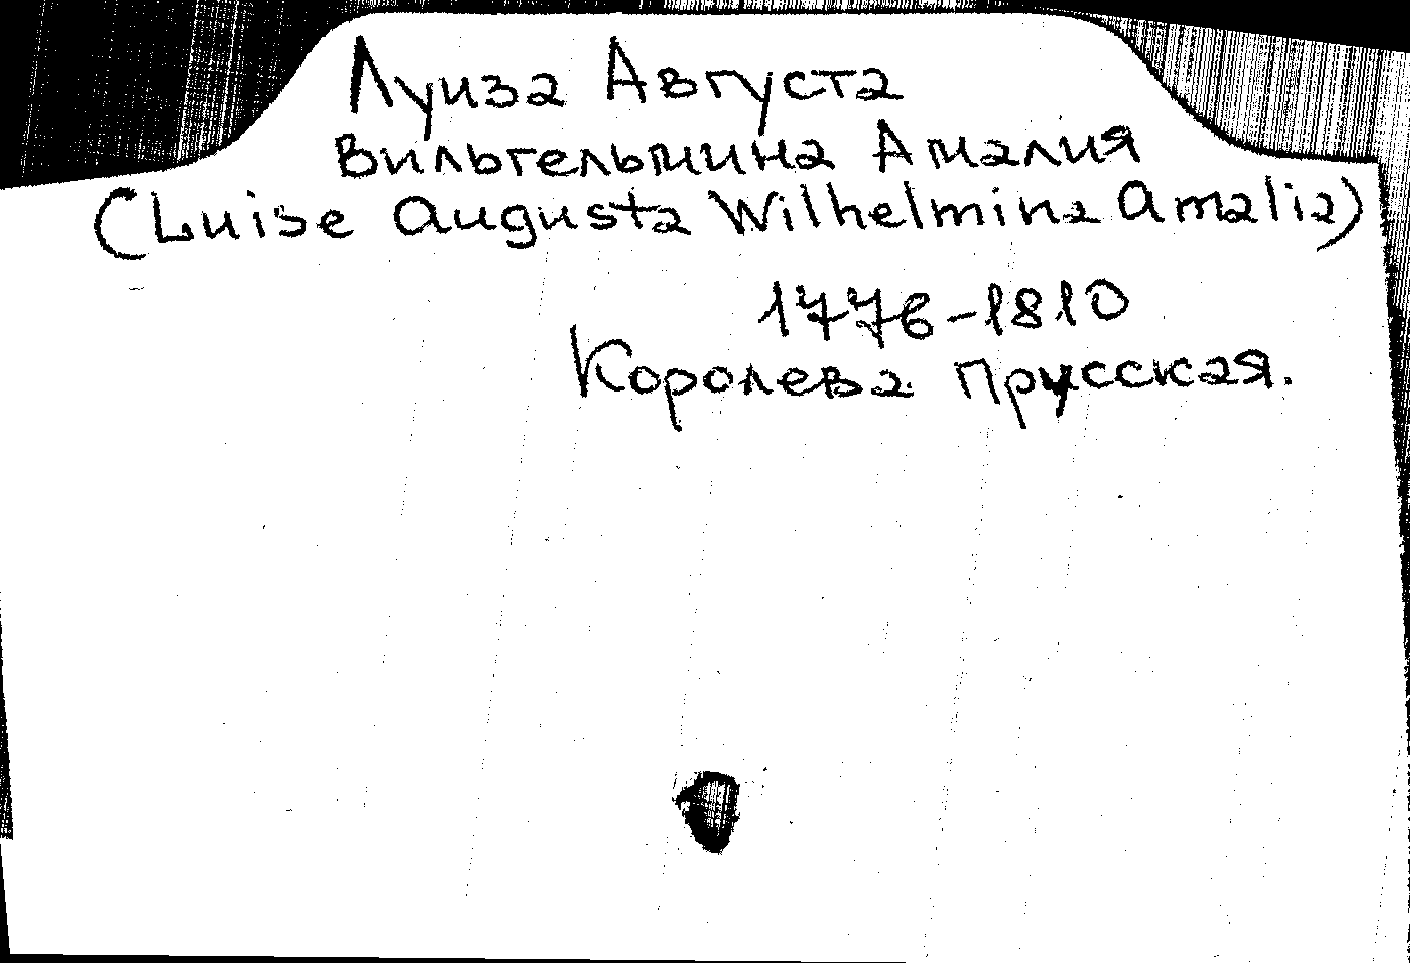 Луиза Августа
Вильгельмина Амалия
(Luise Augusta Wilhelmina Amalia)
1776-1810
Королева прусская.